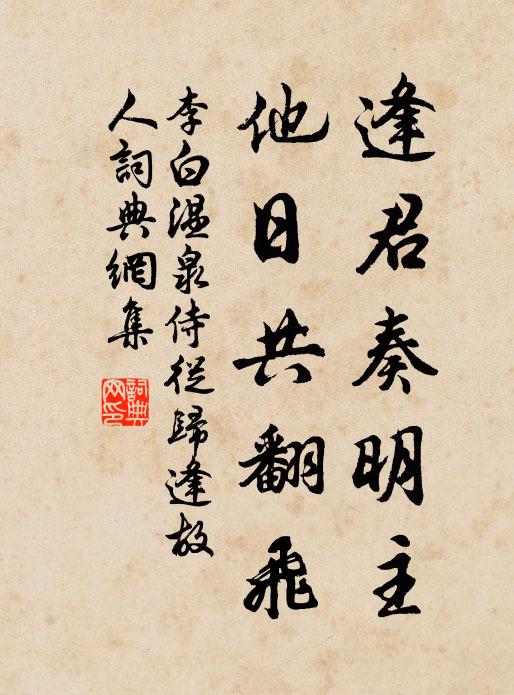 逢君奏明主
他日共翻飛
李白溫泉侍從歸逢故
人詞典網集
詞典
网印